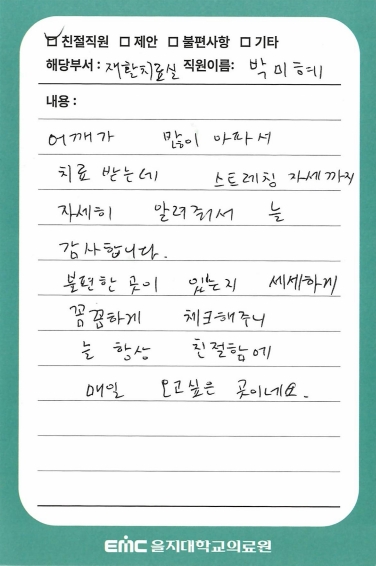 ☑ 친절직원 □ 제안 □ 불편사항 □ 기타
해당부서 : 재활치료실 직원이름 : 박미혜
내용 :
어깨가 많이 아파서
치료 받는데 스트레칭 자세까지
자세히 알려줘서 늘
감사합니다.
불편한 곳이 있는지 세세하게
꼼꼼하게 체크해주니
늘 항상 친절함에
매일 오고싶은 곳이네요.
EMC 을지대학교의료원